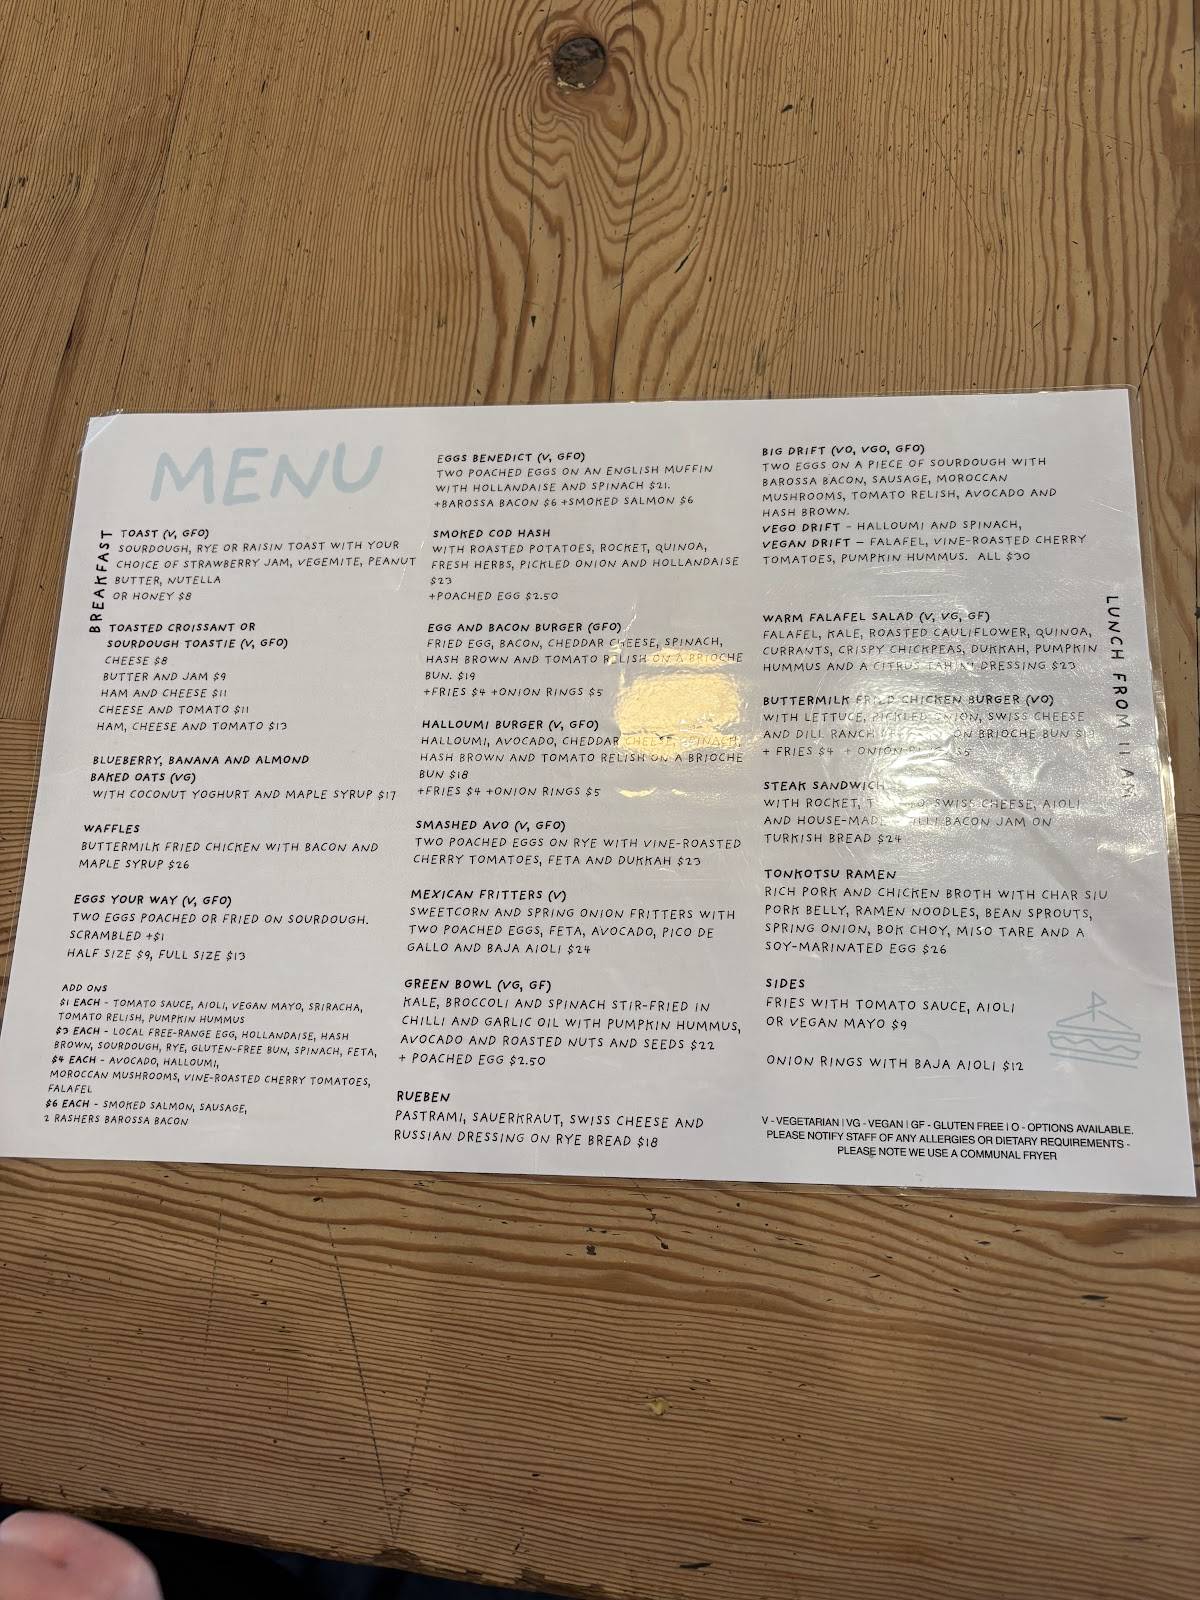 MENU
BREAKFAST
TOAST (V, GFO)
SOURDOUGH, RYE OR RAISIN TOAST WITH YOUR
CHOICE OF STRAWBERRY JAM, VEGEMITE, PEANUT
BUTTER, NUTELLA
OR HONEY $8
TOASTED CROISSANT OR
SOURDOUGH TOASTIE (V, GFO)
CHEESE $8
BUTTER AND JAM $9
HAM AND CHEESE $11
CHEESE AND TOMATO $11
HAM, CHEESE AND TOMATO $13
BLUEBERRY, BANANA AND ALMOND
BAKED OATS (VG)
WITH COCONUT YOGHURT AND MAPLE SYRUP $17
WAFFLES
BUTTERMILK FRIED CHICKEN WITH BACON AND
MAPLE SYRUP $26
EGGS YOUR WAY (V, GFO)
TWO EGGS POACHED OR FRIED ON SOURDOUGH.
SCRAMBLED +$1
HALF SIZE $9, FULL SIZE $13
ADD ONS
$1 EACH - TOMATO SAUCE, AIOLI, VEGAN MAYO, SRIRACHA,
TOMATO RELISH, PUMPKIN HUMMUS
$3 EACH - LOCAL FREE-RANGE EGG, HOLLANDAISE, HASH
BROWN, SOURDOUGH, RYE, GLUTEN-FREE BUN, SPINACH, FETA,
$4 EACH - AVOCADO, HALLOUMI,
MOROCCAN MUSHROOMS, VINE-ROASTED CHERRY TOMATOES,
FALAFEL
$6 EACH - SMOKED SALMON, SAUSAGE,
2 RASHERS BAROSSA BACON
EGGS BENEDICT (V, GFO)
TWO POACHED EGGS ON AN ENGLISH MUFFIN
WITH HOLLANDAISE AND SPINACH $21.
+BAROSSA BACON $6 +SMOKED SALMON $6
SMOKED COD HASH
WITH ROASTED POTATOES, ROCKET, QUINOA,
FRESH HERBS, PICKLED ONION AND HOLLANDAISE
$23
+POACHED EGG $2.50
EGG AND BACON BURGER (GFO)
FRIED EGG, BACON, CHEDDAR CHEESE, SPINACH,
HASH BROWN AND TOMATO RELISH ON A BRIOCHE
BUN. $19
+FRIES $4 +ONION RINGS $5
HALLOUMI BURGER (V, GFO)
HALLOUMI, AVOCADO, CHEDDAR CHEESE, SPINACH,
HASH BROWN AND TOMATO RELISH ON A BRIOCHE
BUN $18
+FRIES $4 +ONION RINGS $5
SMASHED AVO (V, GFO)
TWO POACHED EGGS ON RYE WITH VINE-ROASTED
CHERRY TOMATOES, FETA AND DUKKAH $23
MEXICAN FRITTERS (V)
SWEETCORN AND SPRING ONION FRITTERS WITH
TWO POACHED EGGS, FETA, AVOCADO, PICO DE
GALLO AND BAJA AIOLI $24
GREEN BOWL (VG, GF)
KALE, BROCCOLI AND SPINACH STIR-FRIED IN
CHILLI AND GARLIC OIL WITH PUMPKIN HUMMUS,
AVOCADO AND ROASTED NUTS AND SEEDS $22
+ POACHED EGG $2.50
RUEBEN
PASTRAMI, SAUERKRAUT, SWISS CHEESE AND
RUSSIAN DRESSING ON RYE BREAD $18
BIG DRIFT (VO, VGO, GFO)
TWO EGGS ON A PIECE OF SOURDOUGH WITH
BAROSSA BACON, SAUSAGE, MOROCCAN
MUSHROOMS, TOMATO RELISH, AVOCADO AND
HASH BROWN.
VEGO DRIFT - HALLOUMI AND SPINACH,
VEGAN DRIFT – FALAFEL, VINE-ROASTED CHERRY
TOMATOES, PUMPKIN HUMMUS. ALL $30
LUNCH FROM 11 AM
WARM FALAFEL SALAD (V, VG, GF)
FALAFEL, KALE, ROASTED CAULIFLOWER, QUINOA,
CURRANTS, CRISPY CHICKPEAS, DUKKAH, PUMPKIN
HUMMUS AND A CITRUS TAHINI DRESSING $23
BUTTERMILK FRIED CHICKEN BURGER (VO)
WITH LETTUCE, PICKLED ONION, SWISS CHEESE
AND DILL RANCH ON BRIOCHE BUN
+ FRIES $4 + ONION RINGS $5
STEAK SANDWICH
WITH ROCKET, SWISS CHEESE, AIOLI
AND HOUSE-MADE CHILLI BACON JAM ON
TURKISH BREAD $24
TONKOTSU RAMEN
RICH PORK AND CHICKEN BROTH WITH CHAR SIU
PORK BELLY, RAMEN NOODLES, BEAN SPROUTS,
SPRING ONION, BOK CHOY, MISO TARE AND A
SOY-MARINATED EGG $26
SIDES
FRIES WITH TOMATO SAUCE, AIOLI
OR VEGAN MAYO $9
ONION RINGS WITH BAJA AIOLI $12
V - VEGETARIAN | VG - VEGAN | GF - GLUTEN FREE | O - OPTIONS AVAILABLE.
PLEASE NOTIFY STAFF OF ANY ALLERGIES OR DIETARY REQUIREMENTS -
PLEASE NOTE WE USE A COMMUNAL FRYER